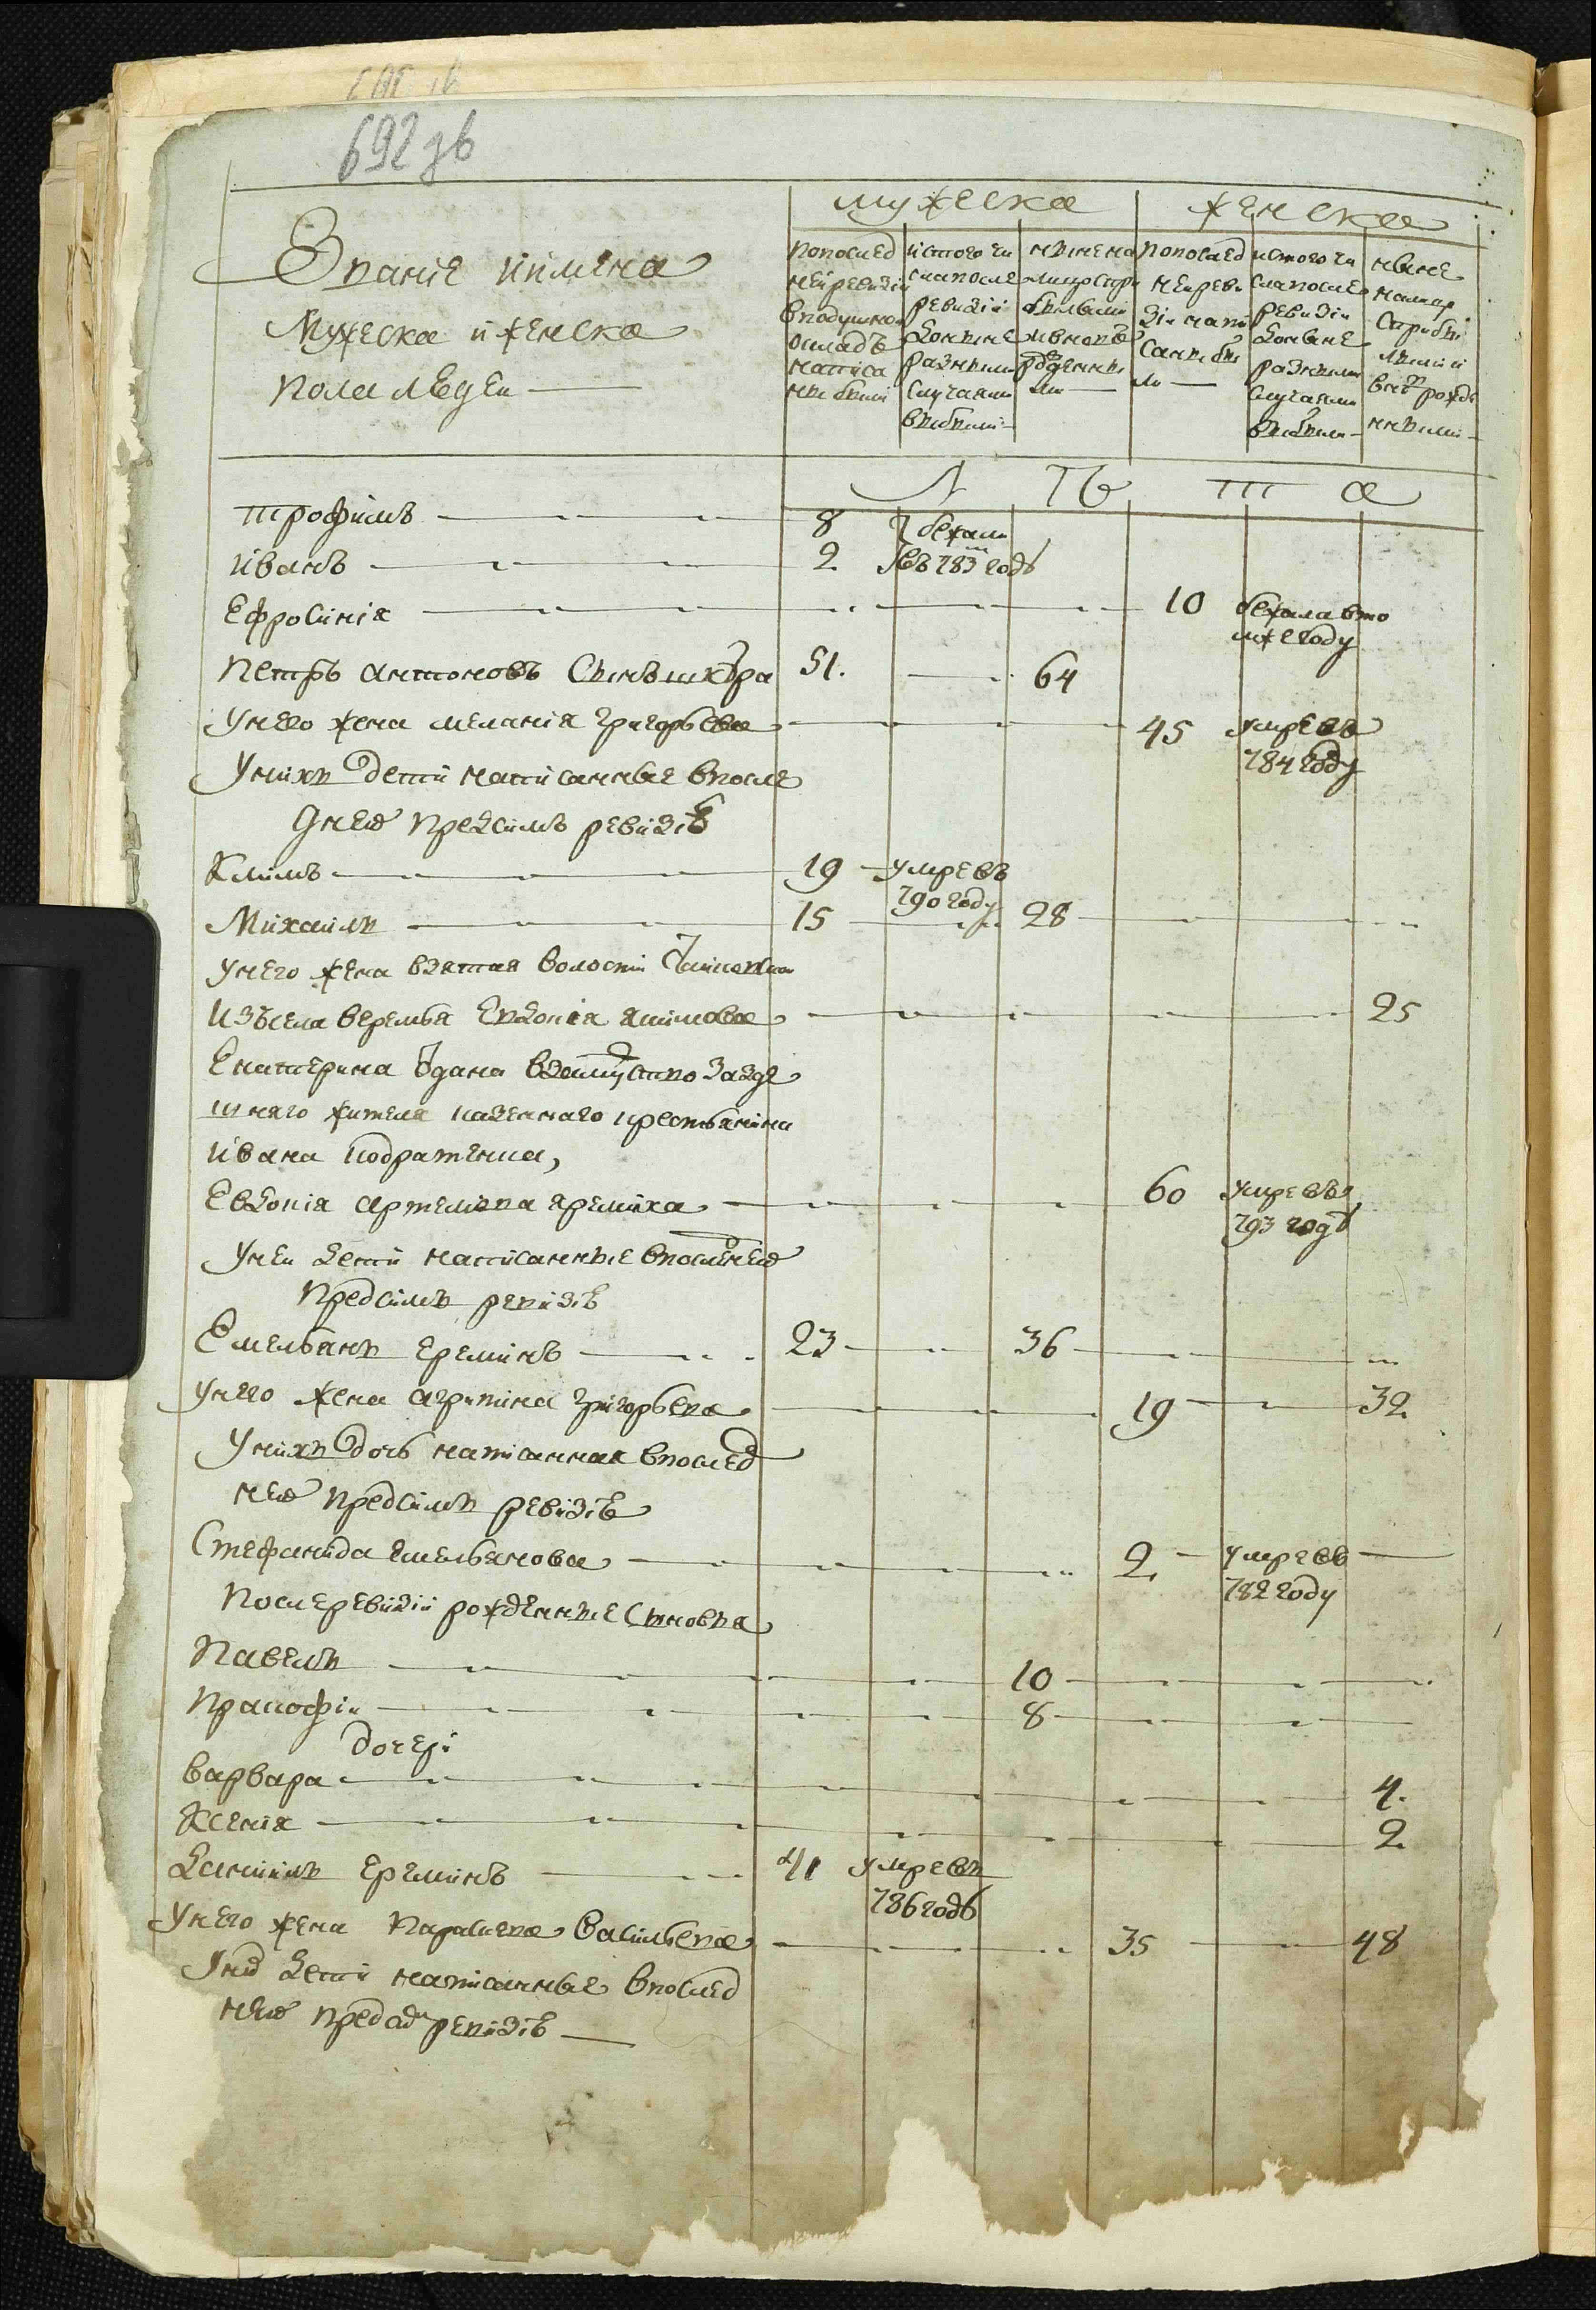 692 зв
мужеска
женска
Званіе иімена
Мужеска и женска
пола людей
попослед ней ревизіи вподушной окладъ написа ны были
ис того чи сла после ревизіи доныне разными случаями выбыли
ныне на лицо стары бывшими ивновь рожденны ми
попослед ней реви зіи напи саны бы ли
ис того чи сла после ревизіи доныне разными случаями выбыли
ныне налицо старыи бывшимии вновъ рожде нными
Л ТЪ т а
Трофимъ 8 бежали
Иванъ 2 въ 783 годъ
Ефросинія 10 бежала вто
мже году
Петръ антоновъ Сынъ 51. 64
Унего жена меланія Григорьева 45 умревъ
784 году
Унихъ дети написанные впосле
дней предсимъ ревизіѣ
Климъ 19 умревъ
790 году
Михаилъ 15 28
унего жена взятая волости
Изъ села веремья Евдокія 25
Екатерина одана взамужство за зде
шняго жителя казеннаго крестьянина
Ивана
Евдокія артемова яремиха 60 умревъ
793 годъ
Уней дети написанные впоследней
предсимъ ревизіѣ
Емельянъ ереминъ 23 36
Унего жена агрипина Григорьева 19 32
Унихъ дочь написанная впослед
ней предсимъ ревизіѣ
Стефанида Емельянова 2 умревъ
782 году
После ревизіи рожденные Сыновья
Павелъ 10
Пракофій 8
дочери
варвара 4.
Ксенія 2
Данилъ ереминъ 41 умревъ
786 годъ
Унего жена Параскева Васильева 35 48
Уних дети написанные впослед
ней предсим ревизіѣ